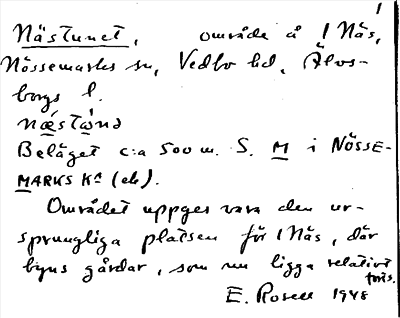 1
Nästunet, område å 1 Näs,
Nössemarks sn, Vedbo hd, Älvs-
borgs l.
næ̀stẁnə
Beläget c:a 500 m. S. M i NÖSSE-
MARKS Ka (ek).
Området uppges vara den ur-
sprungliga platsen för 1 Näs, där
byns gårdar, som nu ligga relativt
forts.
E. Rosell 1948